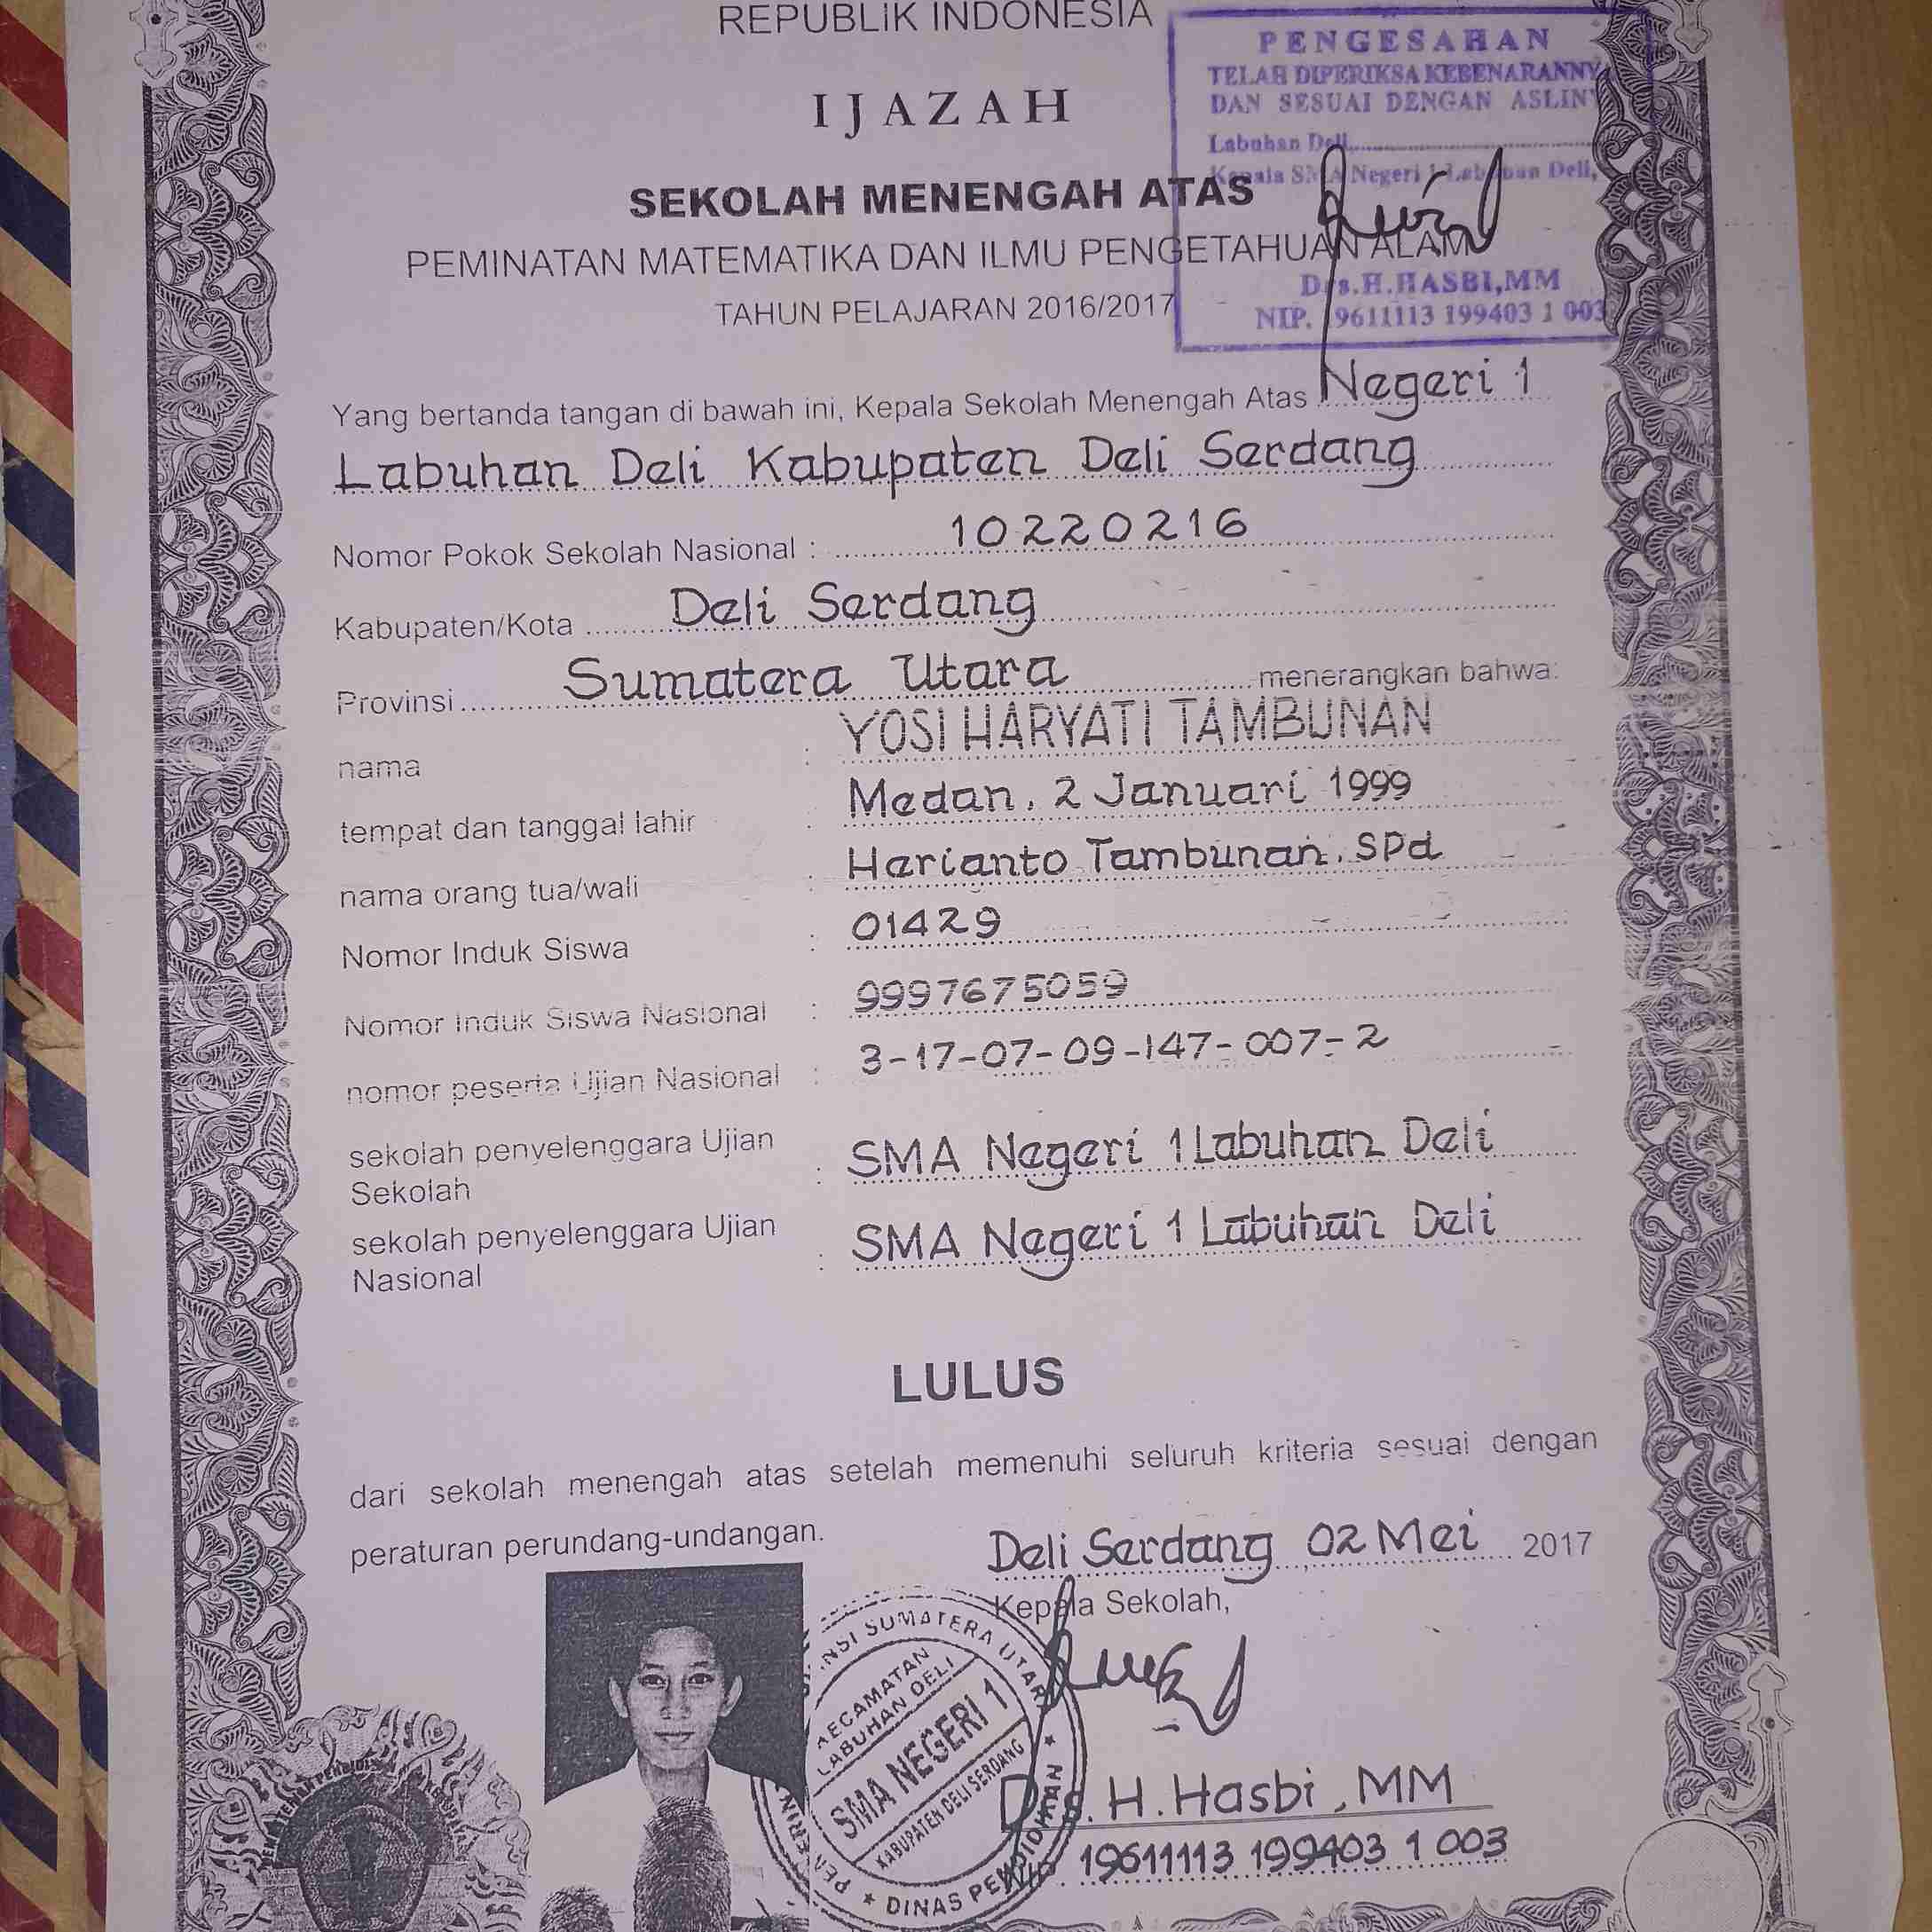 REPUBLIK INDONESIA
IJAZAH
SEKOLAH MENENGAH ATAS
PEMINATAN MATEMATIKA DAN ILMU PENGETAHUAN ALAM
TAHUN PELAJARAN 2016/2017
PENGESAHAN
TELAH DIPERIKSA KEBENARANNY
DAN SESUAI DENGAN ASLIN
Labuhan Deli
Kepala SMA Negeri 1 Labuhan Deli,
Drs.H.HASBI,MM
NIP. 19611113 199403 1 003
Yang bertanda tangan di bawah ini, Kepala Sekolah Menengah Atas Negeri 1
Labuhan Deli Kabupaten Deli Serdang
Nomor Pokok Sekolah Nasional : 10220216
Kabupaten/Kota Deli Serdang
Provinsi Sumatera Utara menerangkan bahwa:
nama : YOSI HARYATI TAMBUNAN
tempat dan tanggal lahir : Medan, 2 Januari 1999
nama orang tua/wali : Harianto Tambunan, SPd
Nomor Induk Siswa : 01429
Nomor Induk Siswa Nasional : 9997675059
nomor peserta Ujian Nasional : 3-17-07-09-147-007-2
sekolah penyelenggara Ujian
Sekolah : SMA Negeri 1 Labuhan Deli
sekolah penyelenggara Ujian
Nasional : SMA Negeri 1 Labuhan Deli
LULUS
dari sekolah menengah atas setelah memenuhi seluruh kriteria sesuai dengan
peraturan perundang-undangan.
Deli Serdang, 02 Mei 2017
Kepala Sekolah,
SUMATERA UTARA
KECAMATAN
LABUHAN DELI
SMA NEGERI 1
KABUPATEN DELI SERDANG
DINAS PENDIDIKAN
H. Hasbi, MM
19611113 199403 1 003